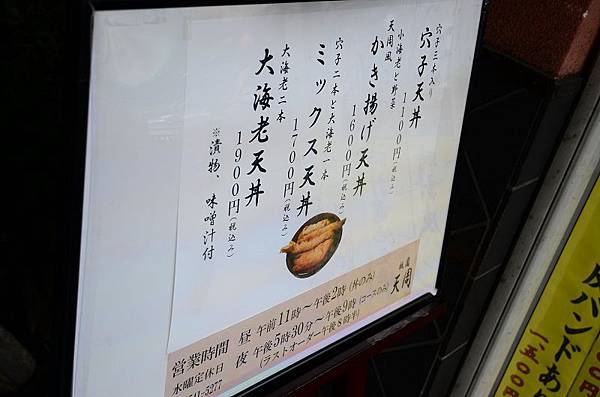 穴子三本入り
穴子天丼
1100円(税込み)
小海老と野菜
天周風
かき揚げ天丼
1600円(税込み)
穴子二本と大海老一本
ミックス天丼
1700円(税込み)
大海老二本
大海老天丼
1900円(税込み)
※漬物、味噌汁付
祇園
天周
営業時間 昼 午前11時〜午後2時(丼のみ)
夜 午後5時30分〜午後9時(コースのみ)
(ラストオーダー午後8時半)
水曜定休日
541-5277
ハンドあり
一、五〇〇円